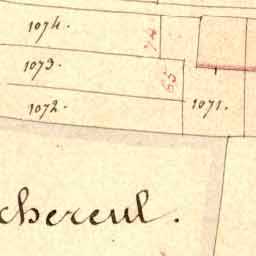 1074.
74
1073.
65
1072.
1071.
chereul.